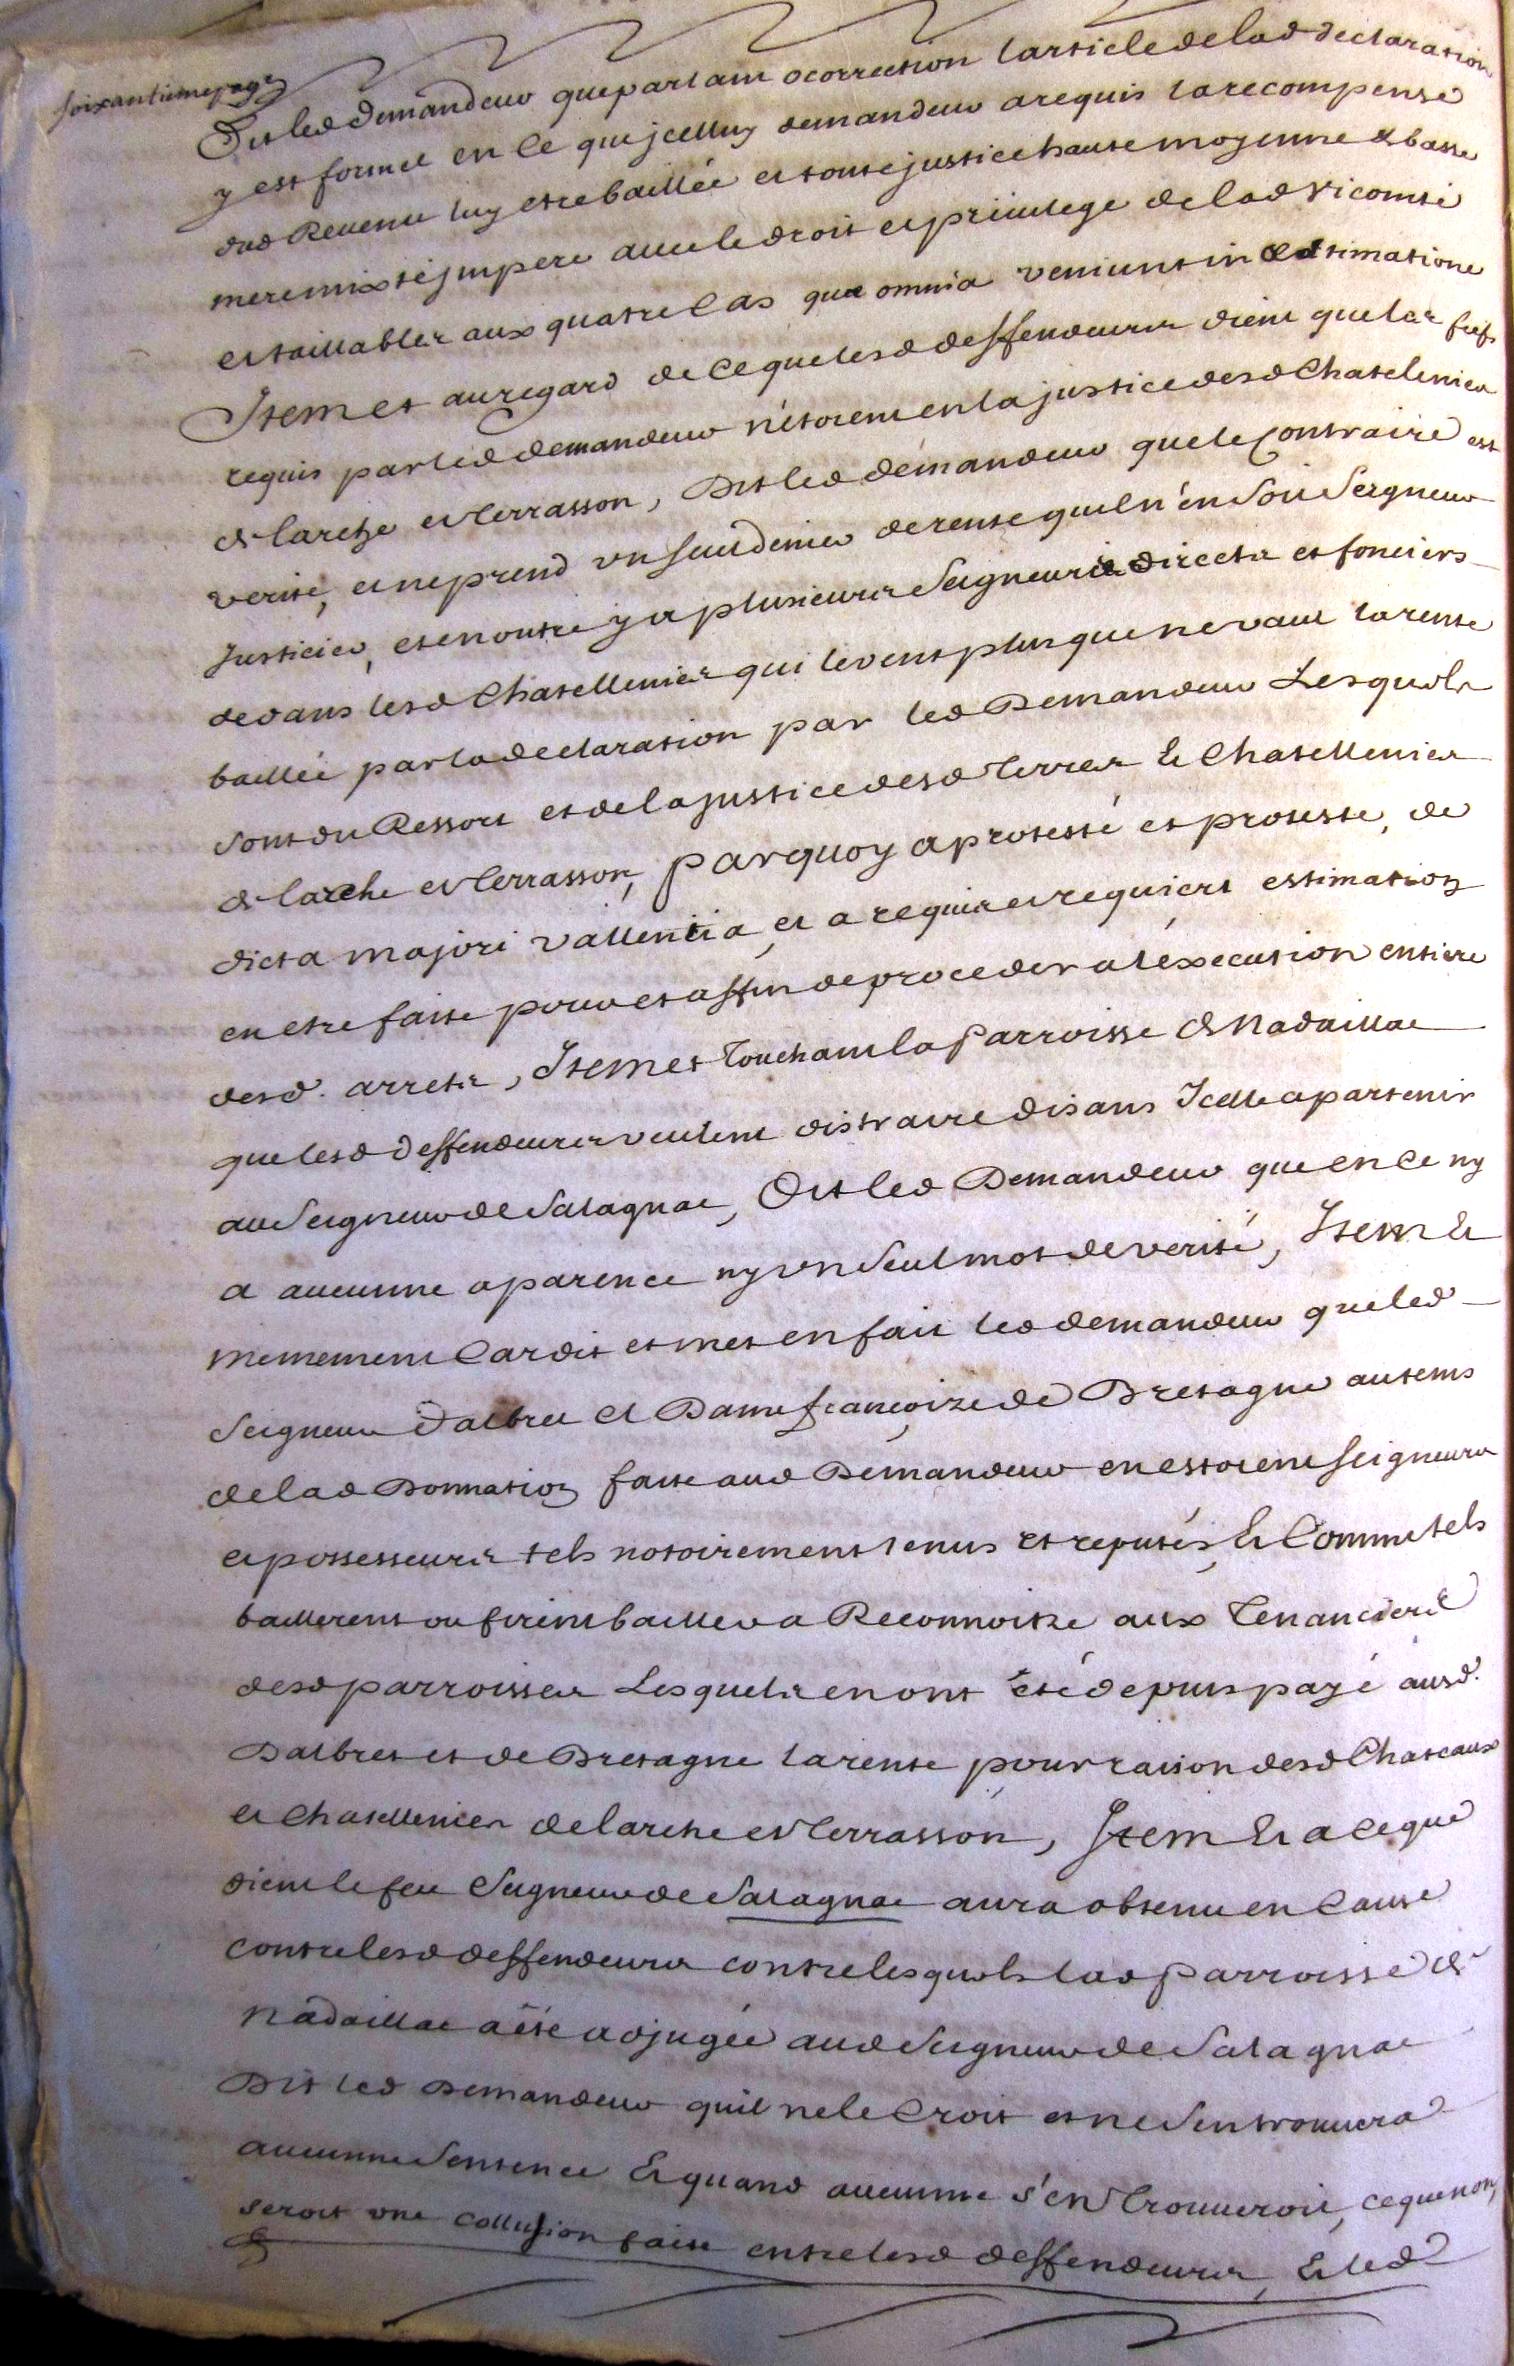 soixantieme page
Dit led demandeur que parlant o correction l'article de lad declaration
y est formel en ce que jcelluy demandeur a requis la recompense
dud Revenu luy etre baillée et toute justice haute moyenne & basse
mere mixte jmpere avec le droit et privilege de lad vicomté
et taillables aux quatre cas quæ omnia veniunt in æstimatione
Item et au regard de ce que lesd deffendeurs dient que les fiefs
requis par led demandeur n'étoient en la justice desd Chatelenies
de larche et Terrasson, Dit led demandeur que le Contraire est
verité, et ne prend un seul denier de rente quil n'en soit Seigneur
Justicier, et en outre y a plusieurs Seigneurs directs et fonciers
dedans lesd Chatellenies qui levent plus que ne vaut la rente
baillée par la declaration par led Demandeur Lesquels
sont du Ressort et de la justice desd Terres Et Chatellenies
de larche et Terrasson, parquoy a protesté et proteste, de
dicta majori vallentia, et a requis et requiert estimation
en etre faite pour et affin de proceder a l'éxecution entiere
desd. arrets, Item et Touchant la Parroisse de Nadaillac
que lesd deffendeurs veulent distraire disans Icelle apartenir
au Seigneur de Salagnac, Dit led Demandeur que en ce ny
a aucunne aparence ny un seul mot de verité, Item Et
mememement Car dit et met en fait led demandeur que led
Seigneur Dalbret et Dame françoize de Bretagne au tems
de lad Donnation faite aud Demandeur en estoient seigneurs
et possesseurs tels notoirement tenus et reputés, Et Comme tels
baillerent ou firent bailler a Reconnoitre aux Tenanciers
desd parroisses Lesquels en ont été depuis payé ausd.
Dalbret et de Bretagne la rente pour raison desd Chateaux
et Chatellenies de larche et Terrasson, Item Et a ce que
dient le feu Seigneur de Salagnac aura obtenu en Cause
contre lesd deffendeurs contre lesquels lad parroisse de
Nadaillac a été adjugée aud Seigneur de Salagnac
Dit led Demandeur quil ne le Croit et ne s'en trouvera
aucunne Sentence Et quand aucunne s'en Trouveroit, ce que non,
seroit une collusion faite entre lesd deffendeurs, Et led